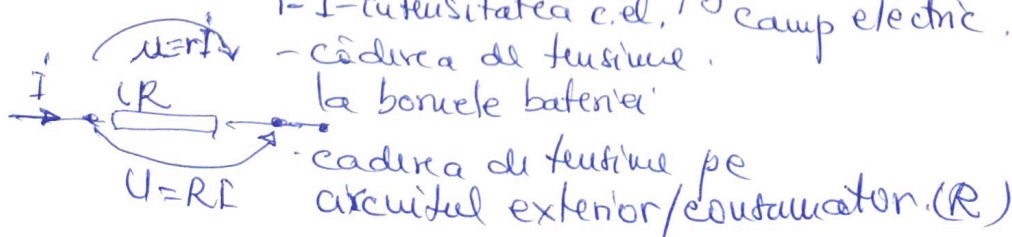 I - Intensitatea c.el. camp electric.
u=rI - cădirea de tensiune.
I R la bornele bateriei
- cadirea de tensiune pe
U=RI circuitul exterior/consumator.(R)